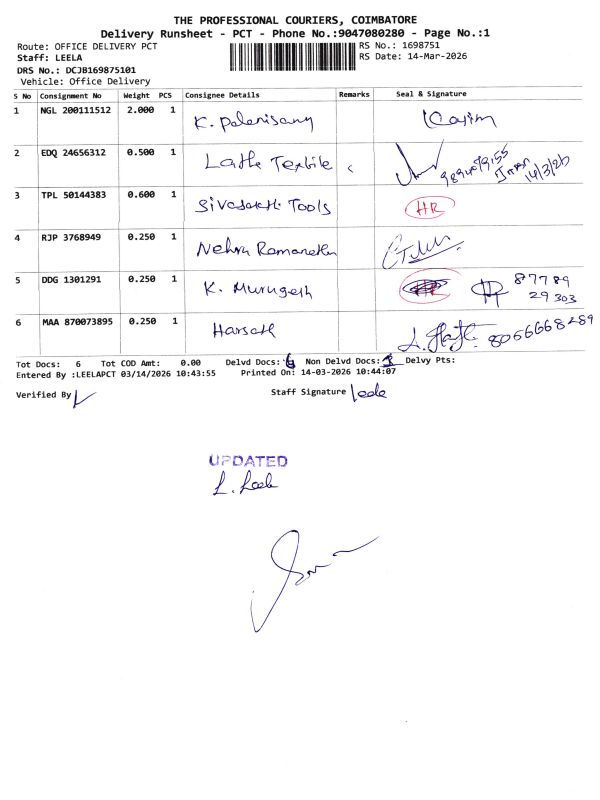 THE PROFESSIONAL COURIERS, COIMBATORE
Delivery Runsheet - PCT - Phone No.:9047080280 - Page No.:1
Route: OFFICE DELIVERY PCT
RS No.: 1698751
Staff: LEELA
RS Date: 14-Mar-2026
DRS No.: DCJB169875101
Vehicle: Office Delivery
S No Consignment No Weight PCS Consignee Details Remarks Seal & Signature
1 NGL 200111512 2.000 1 K. Palanisamy
2 EDQ 24656312 0.500 1 Lathe Textile 14/3/26
3 TPL 50144383 0.600 1 Sivasakthi Tools HR
4 RJP 3768949 0.250 1 Nehru
5 DDG 1301291 0.250 1 K. Murugesh 87789
29303
6 MAA 870073895 0.250 1 Harsath 8056668289
Tot Docs: 6 Tot COD Amt: 0.00 Delvd Docs: 6 Non Delvd Docs: Delvy Pts:
Entered By :LEELAPCT 03/14/2026 10:43:55 Printed On: 14-03-2026 10:44:07
Verified By Staff Signature Leela
UPDATED
L. Leela